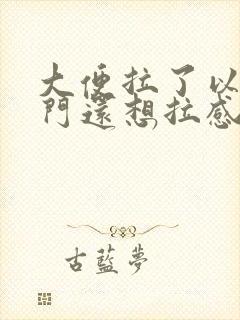 大便拉了以
門還想拉感
古藍夢